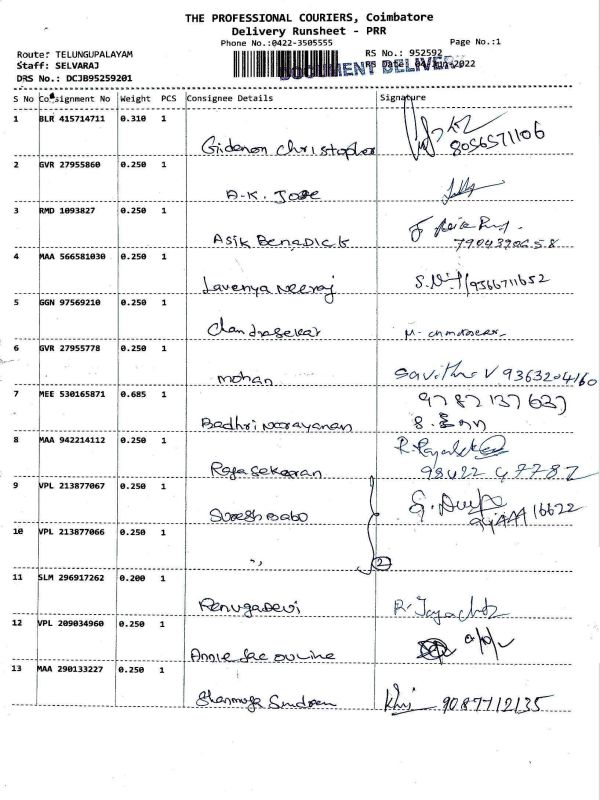 THE PROFESSIONAL COURIERS, Coimbatore
Delivery Runsheet - PRR
Phone No.:0422-3505555 Page No.:1
Route: TELUNGUPALAYAM RS No.: 952592
Staff: SELVARAJ RS Date: 04/Jun/2022
DOCUMENT DELIVERY
DRS No.: DCJB95259201
S No Consignment No Weight PCS Consignee Details Signature
1 BLR 415714711 0.310 1
Gideon Christopher 8056571106
2 GVR 27955860 0.250 1
A.K. Jose
3 RMD 1093827 0.250 1
Asik Benadick
4 MAA 566581030 0.250 1
Lavenya Neeraj 9566711652
5 GGN 97569210 0.250 1
Chandrasekar
6 GVR 27955778 0.250 1
mohan Savithri V 9363204160
7 MEE 530165871 0.685 1 9787137637
Badhri Narayanan
8 MAA 942214112 0.250 1
Rajasekaran 98422 47782
9 VPL 213877067 0.250 1
Suresh Babu
10 VPL 213877066 0.250 1
,, 2
11 SLM 296917262 0.200 1
RenugaDevi
12 VPL 209034960 0.250 1
Annie Jacquline
13 MAA 290133227 0.250 1
Shanmuga Sundram 9087712135